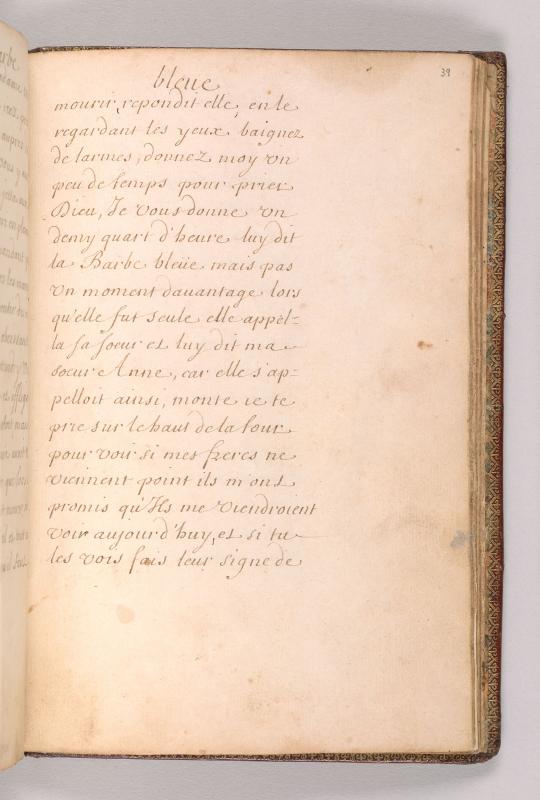 39
bleue
mourir, repondit elle, en le
regardant les yeux baignez
de larmes, donnez moy vn
peu de temps pour prier
Dieu, Je vous donne vn
demy quart d'heure luy dit
la Barbe bleüe mais pas
vn moment dauantage lors
qu'elle fut seule elle appel=
la sa soeur et luy dit ma
soeur Anne, car elle s'ap=
pelloit ainsi, monte ie te
prie sur le haut de la tour
pour voir si mes freres ne
viennent point ils m'ont
promis qu'Ils me viendroient
voir aujourd'huy, et si tu
les vois fais leur signe de